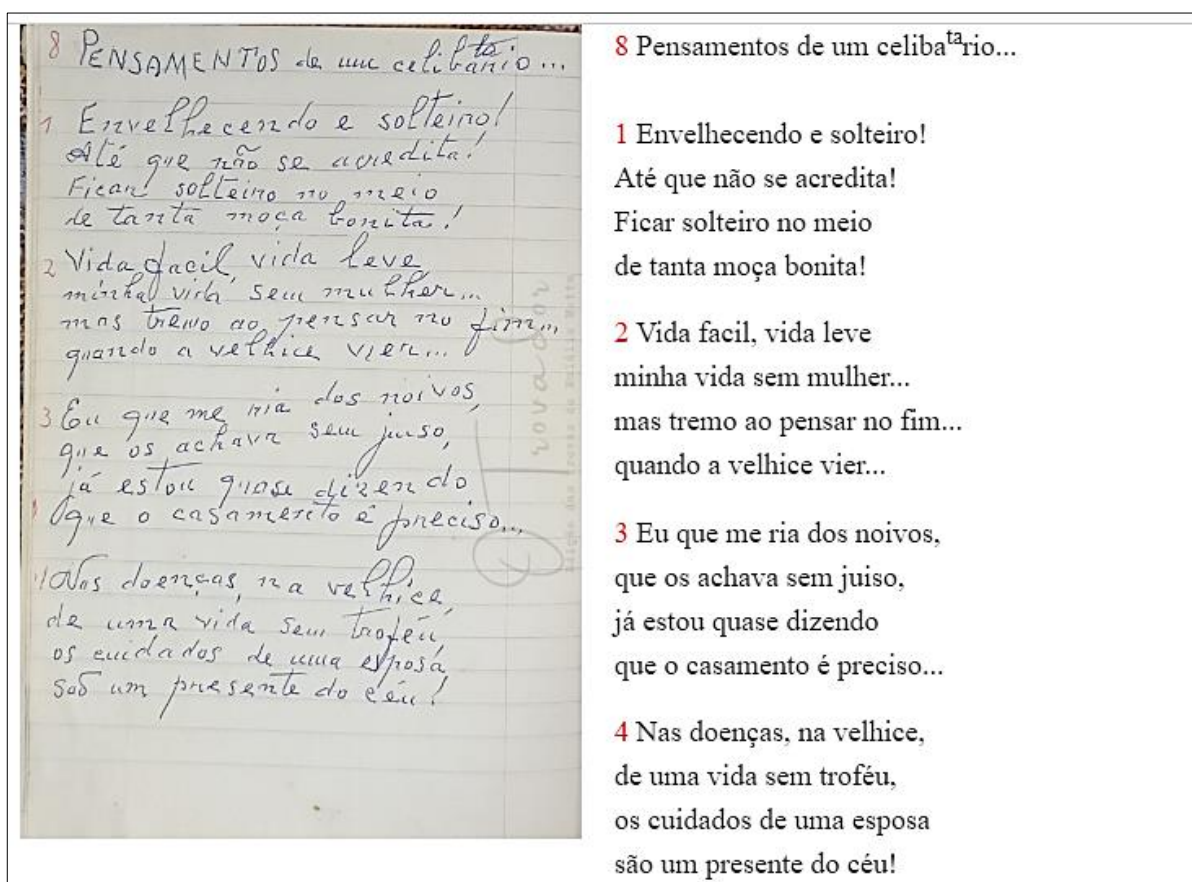 8 PENSAMENTOS de um celibatário...
1 Envelhecendo e solteiro!
Até que não se acredita!
Ficar solteiro no meio
de tanta moça bonita!
2 Vida facil, vida leve
minha vida sem mulher...
mas tremo ao pensar no fim...
quando a velhice vier...
3 Eu que me ria dos noivos,
que os achava sem juiso,
já estou quase dizendo
que o casamento é preciso...
4 Nas doenças, na velhice,
de uma vida sem troféu,
os cuidados de uma esposa
são um presente do céu!
rovador
8 Pensamentos de um celibatário...
1 Envelhecendo e solteiro!
Até que não se acredita!
Ficar solteiro no meio
de tanta moça bonita!
2 Vida facil, vida leve
minha vida sem mulher...
mas tremo ao pensar no fim...
quando a velhice vier...
3 Eu que me ria dos noivos,
que os achava sem juiso,
já estou quase dizendo
que o casamento é preciso...
4 Nas doenças, na velhice,
de uma vida sem troféu,
os cuidados de uma esposa
são um presente do céu!